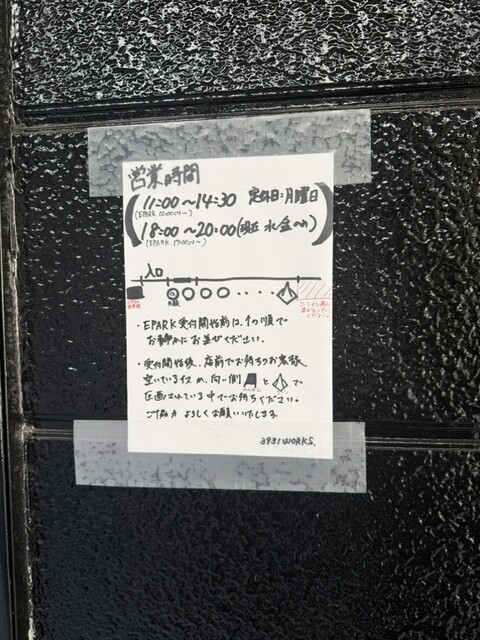 営業時間
11:00〜14:30 定休日:月曜日
(EPARK 10:00〜)
18:00〜20:00(現在 水金のみ)
(EPARK 17:00〜)
入口
・EPARK受付開始前は、↑の順で
お静かにお並びください。
・受付開始後、店前でお待ちのお客様、
空いているイス か、向い側 と で
区画されている中でお待ちください。
ご協力 よろしくお願いいたします。
3981WORKS.